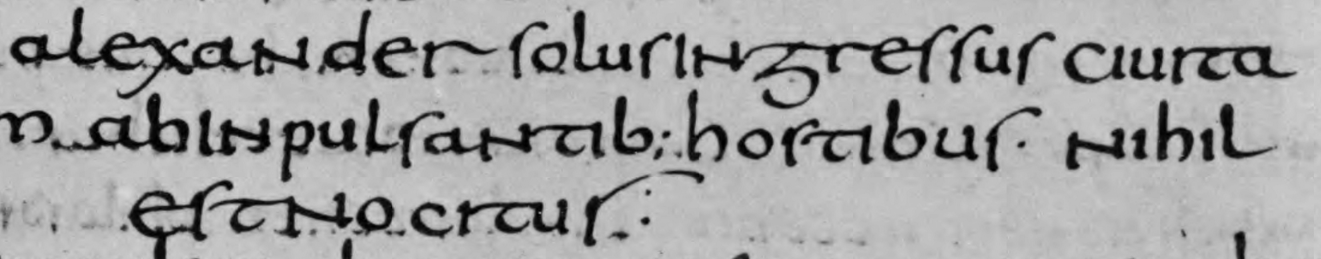 alexander solus ingressus ciuita
m. ab inpulsantib; hostibus. nihil
est nocitus: